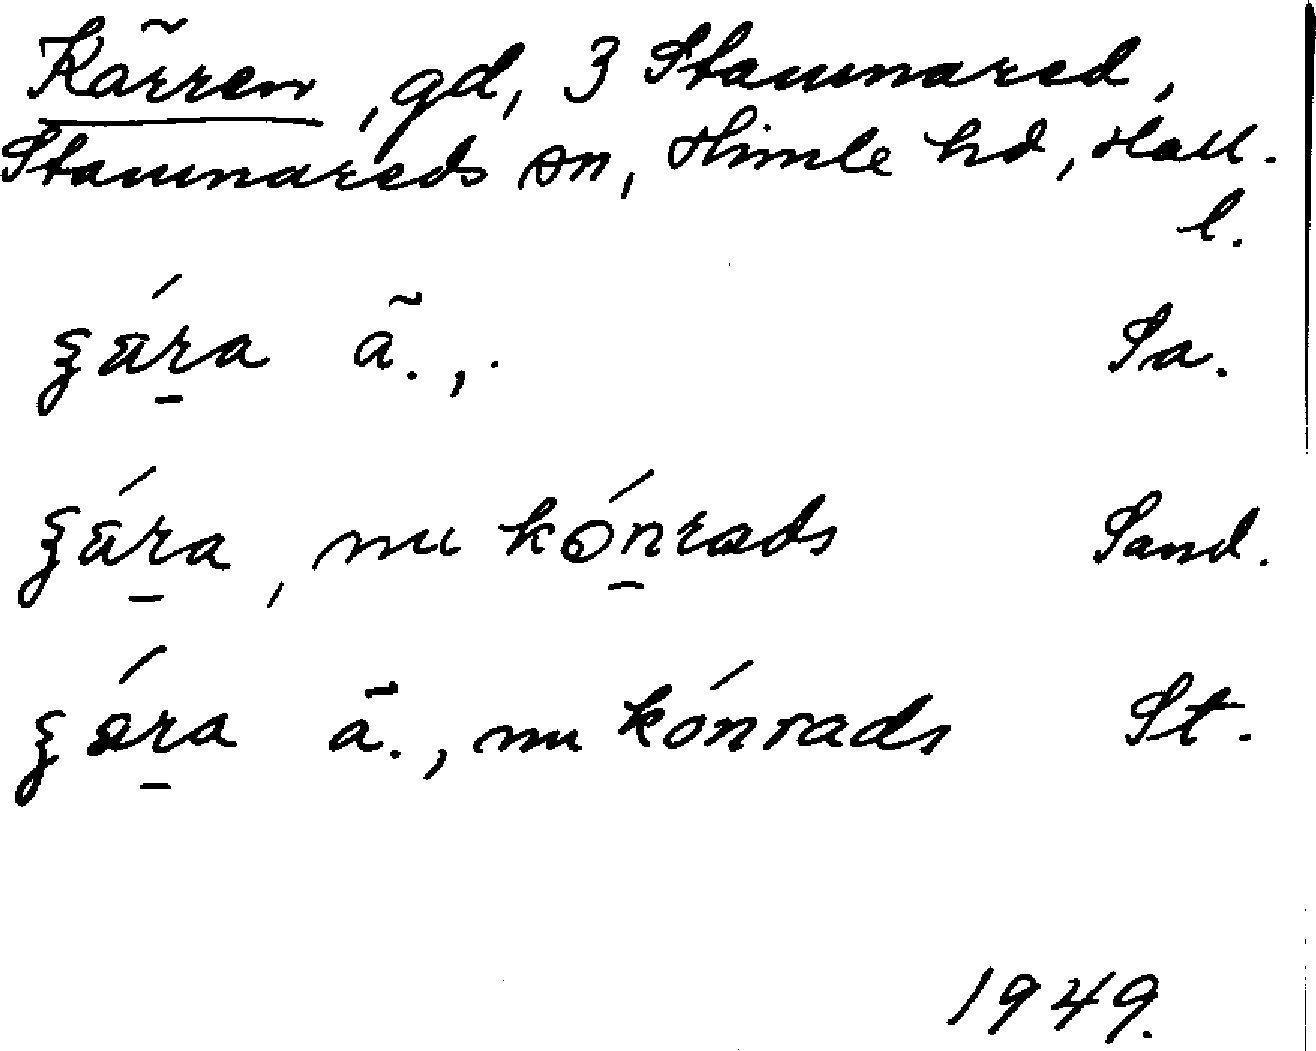 Kärren, gd, 3 Stamnared,
Stamnareds sn, Himle hd, Hall.
l.
ɕára ā.,. Sa.
ɕára, nu kónrads Sand.
ɕǿra ā., nu kónrads St.
1949.